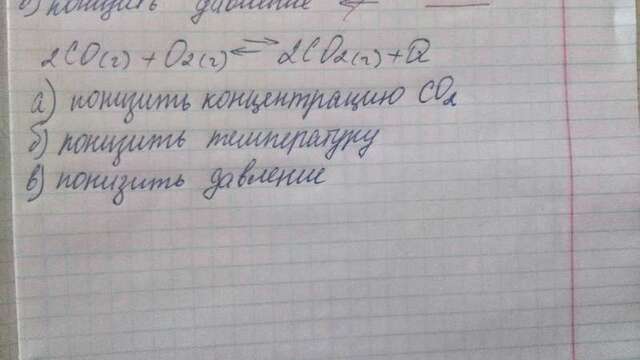 в) понизить давление ←
2CO(г) + O2(г) ⇄ 2CO2(г) + Q
а) понизить концентрацию CO2
б) понизить температуру
в) понизить давление